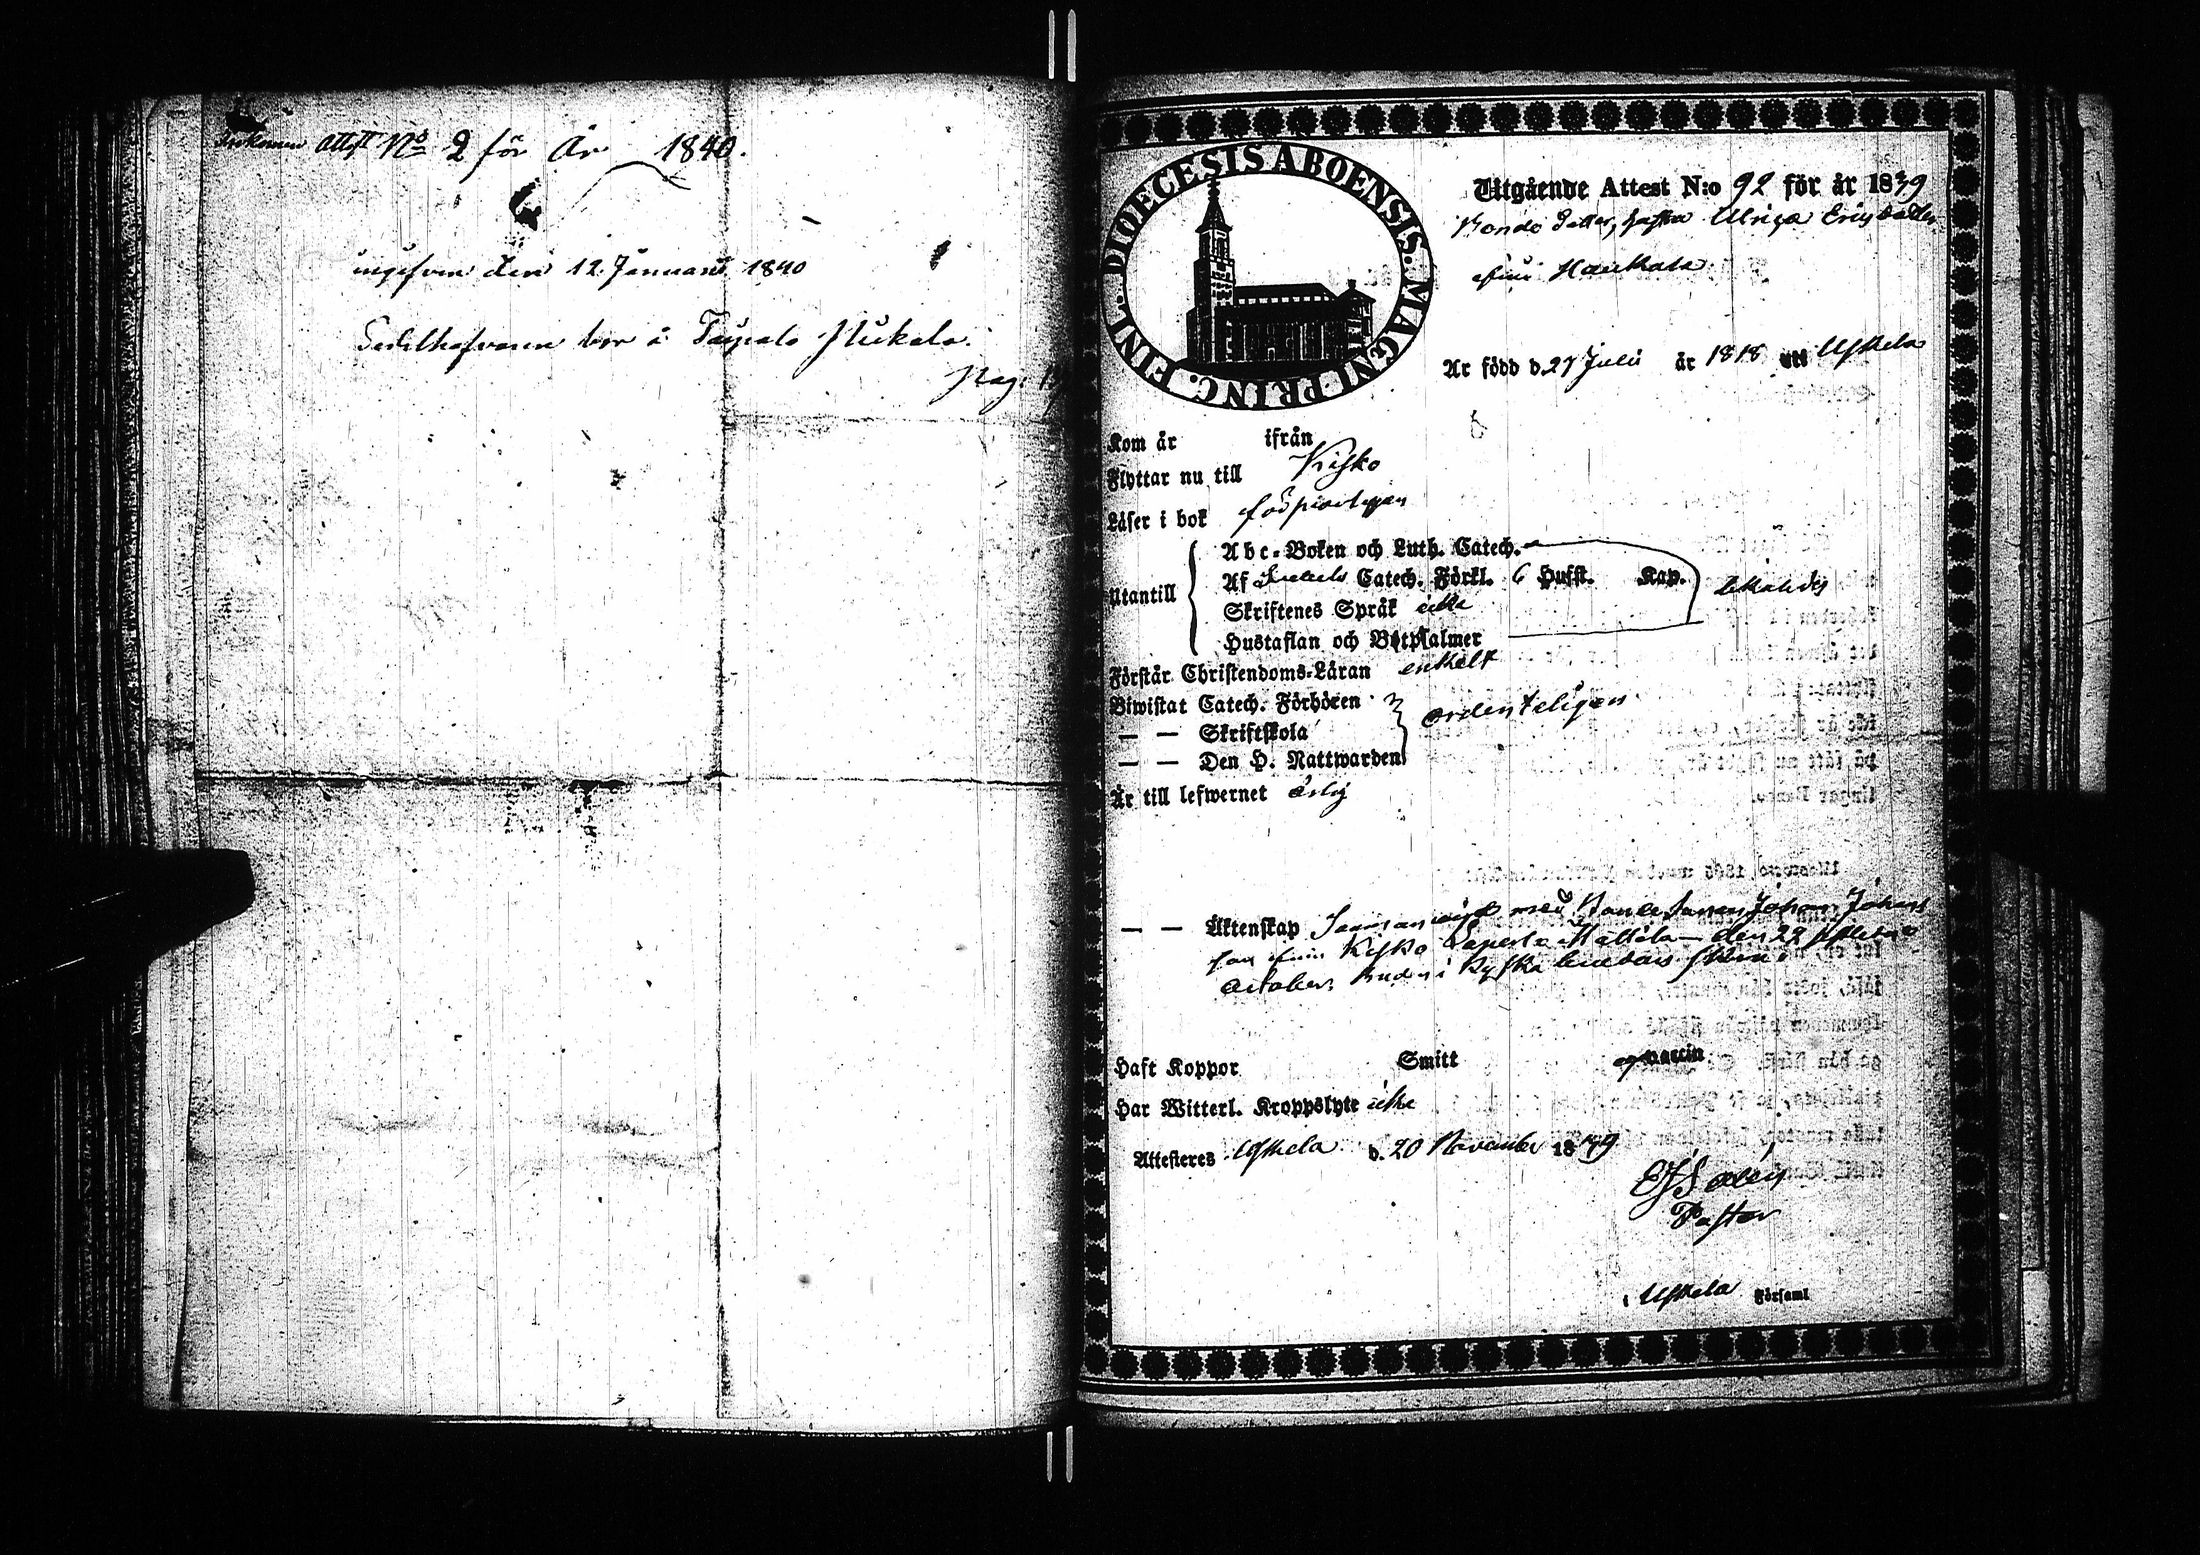 Inkommen Attest No 2 för År 1840.
ingifven den 12 Januarii 1840
Sedelhafvaren bor å Nukala.
Pag:
DIOECESIS ABOENSIS. MAGNI PRINC. FINL.
Utgående Attest N:o 92 för år 1839
Bonde Dotter, Ulrica Ericsdotter
ifrån Haukala
Är född d. 27 Julii år 1818 uti Uskela
Kom år ifrån
Flyttar nu till Kisko
Läser i bok försvarligen
Utantill
Abc-Boken och Luth. Catech.
Af Catech. Förkl. 6 Hufst. Kap.
Skriftenes Språk icke
Hustaflan och Botpsalmer
Förstår Christendoms-Läran enkelt
Biwistat Catech. Förhören
— — Skriftskola ordenteligen
— — Den H. Nattwarden
Är till lefwernet ärlig
— — Äktenskap Sammanvigd med Bonde Sonen Johan Johans
son ifrån Kisko Mattila den 22
October
Haft Koppor Smitt Vaccin
Har Witterl. Kroppslyte icke
Attesteres Uskela d. 20 November 1839
Pastor
i Uskela Församl